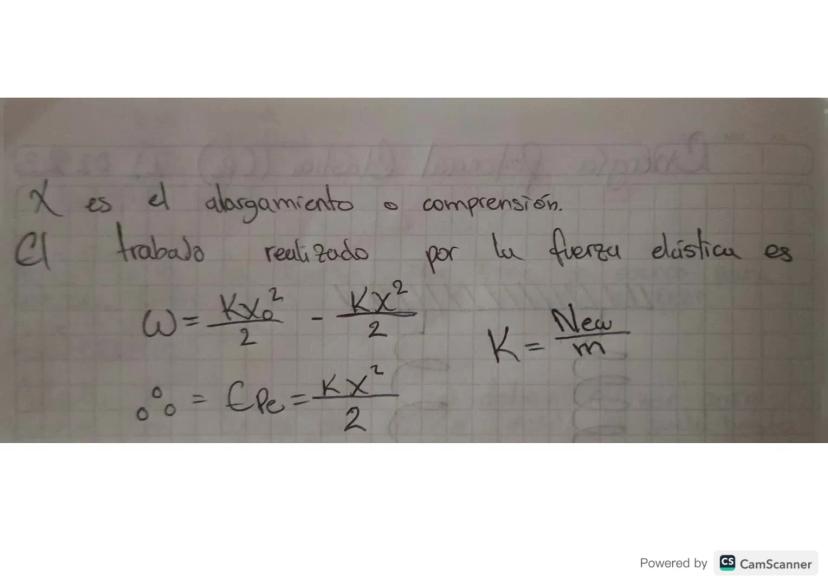 X es el alargamiento o comprensión.
El trabajo realizado por la fuerza elástica es
W = Kx₀²/2 - Kx²/2
K = New/m
∴ = EPe = Kx²/2
Powered by CS CamScanner